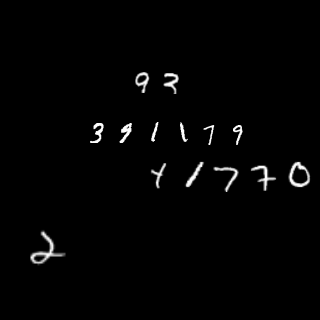 93
391179
41770
2